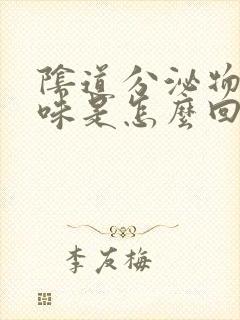 陰道分泌物
味是怎麼回
李友梅